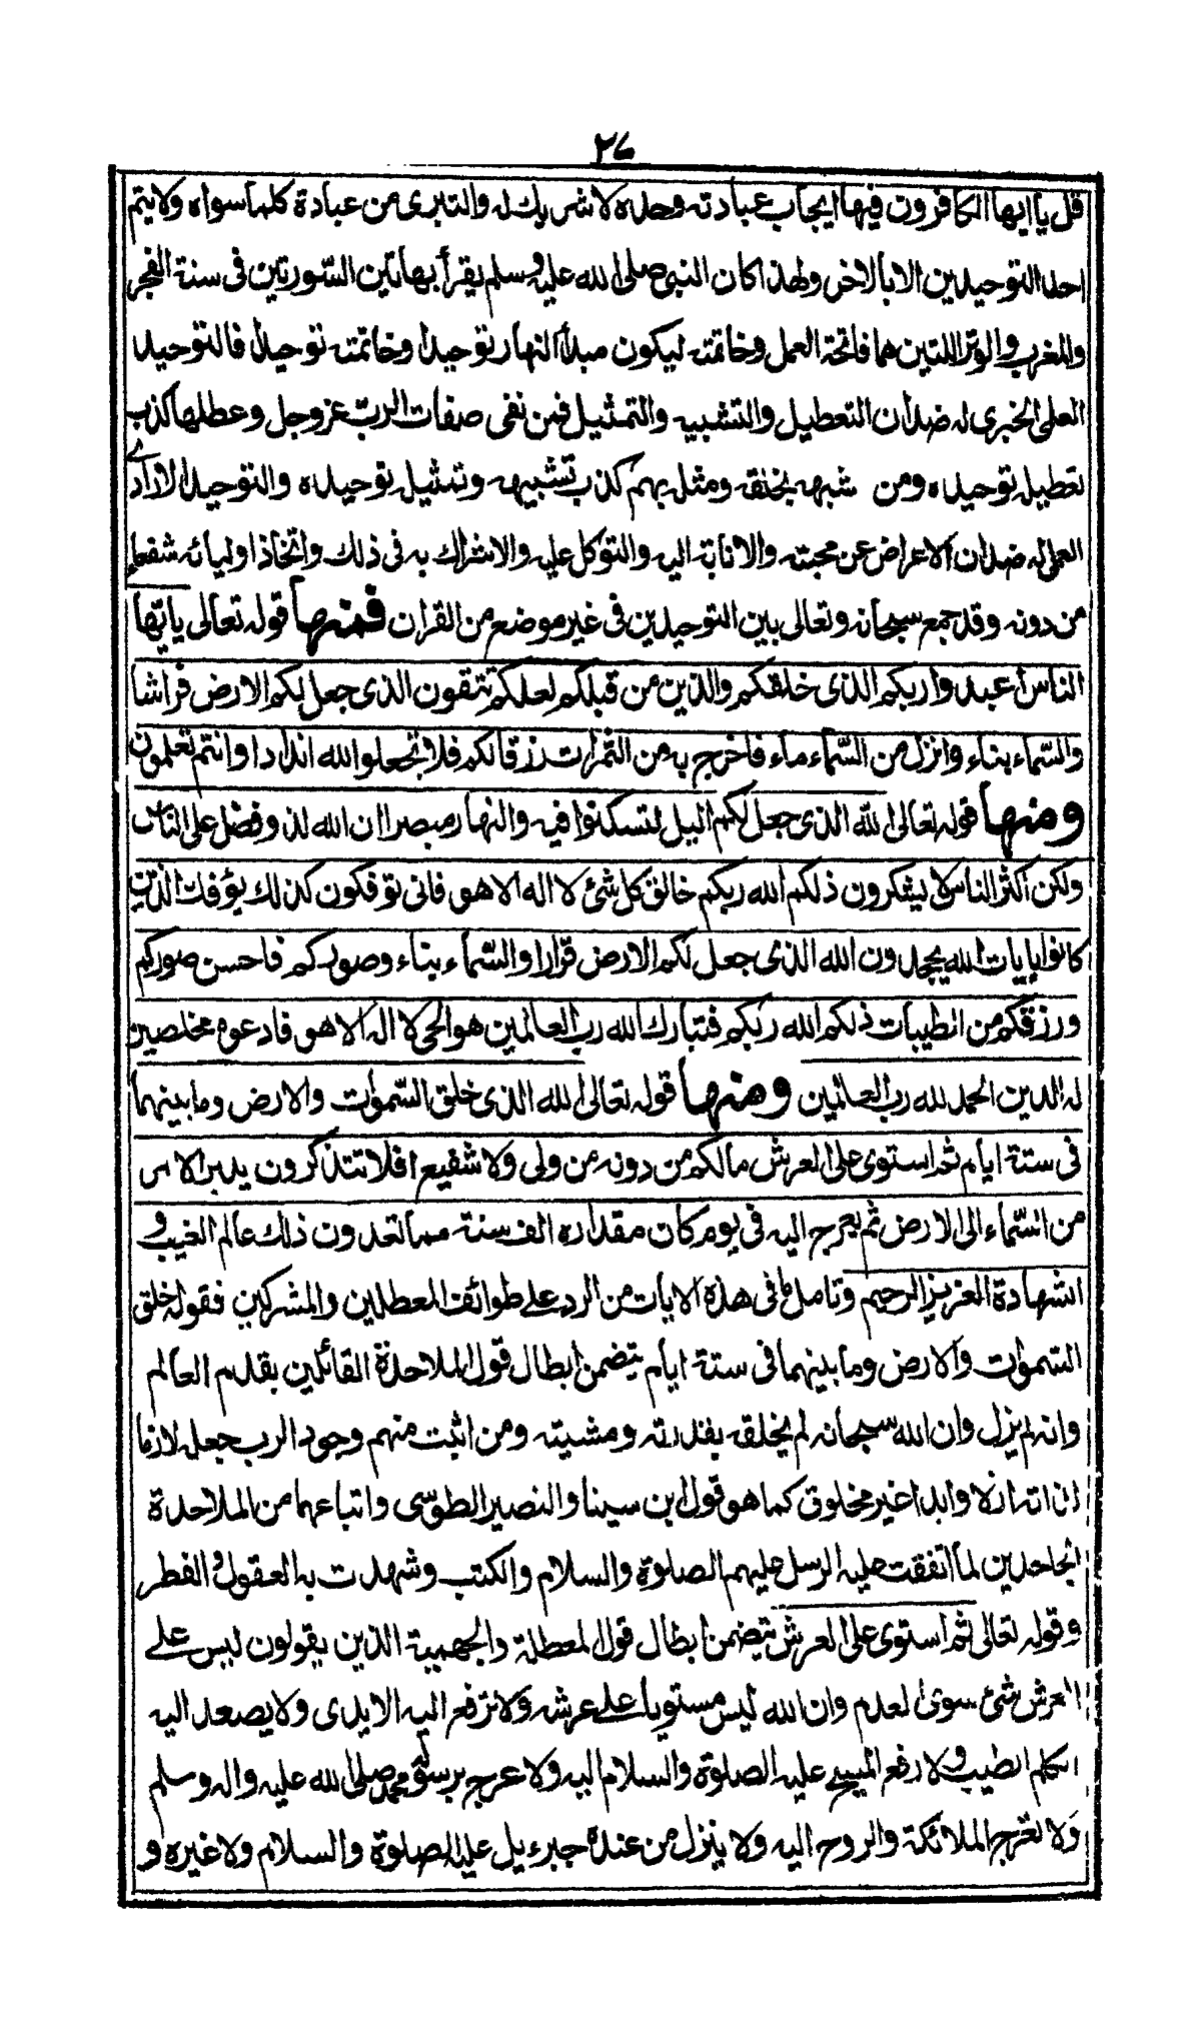 ٣٧
قل يا ايها الكافرون فيها ايجاب عبادته وحده لا شريك له والتبرى من عبادة كلما سواه ولا يتم
احد التوحيدين الا بالاخر ولهذا كان النبى صلى الله عليه وسلم يقرأ بهاتين السّورتين فى سنة الفجر
والمغرب والوتر اللتين هما فاتحة العمل وخاتمته ليكون مبدأ النهار توحيدا وخاتمته توحيدا فالتوحيد
العلمى الخبرى له ضدان التعطيل والتشبيه والتمثيل فمن نفى صفات الربّ عز وجل وعطلها كذب
تعطيله توحيده ومن شبهه بخلقه ومثله بهم كذب تشبيهه وتمثيله توحيده والتوحيد الارادے
العملى له ضدان الاعراض عن محبته والانابة اليه والتوكل عليه والاشراك به فى ذلك واتخاذ اوليائه شفعاء
من دونه وقد جمع سبحانه وتعالى بين التوحيدين فى غير موضع من القران فمنها قوله تعالى يا ايّها
الناس اعبدوا ربكم الذى خلقكم والذين من قبلكم لعلكم تتقون الذى جعل لكم الارض فراشا
والسّماء بناء وانزل من السّماء ماء فاخرج به من الثمرات رزقا لكم فلا تجعلوا الله اندادا وانتم تعلمون
ومنها قوله تعالى الله الذى جعل لكم اليل لتسكنوا فيه والنهار مبصرا ان الله لذو فضل على الناس
ولكن اكثر الناس لا يشكرون ذلكم الله ربكم خالق كل شئ لا اله الا هو فانى توفكون كذلك يؤفك الذين
كانوا بايات الله يجحدون الله الذى جعل لكم الارض قرارا والسّماء بناء وصوركم فاحسن صوركم
ورزقكم من الطيبات ذلكم الله ربكم فتبارك الله رب العالمين هو الحى لا اله الا هو فادعوه مخلصين
له الدين الحمد لله رب العالمين ومنها قوله تعالى الله الذى خلق السّموات والارض وما بينهما
فى ستة ايام ثم استوى على العرش مالكم من دونه من ولى ولا شفيع افلا تتذكرون يدبر الامر
من السّماء الى الارض ثم يعرج اليه فى يوم كان مقداره الف سنة مما تعدون ذلك عالم الغيب و
الشهادة العزيز الرحيم وتامل ما فى هذه الايات من الرد على طوائف المعطلين والمشركين فقوله خلق
السّموات والارض وما بينهما فى ستة ايام يتضمن ابطال قول الملاحدة القائلين بقدم العالم
وانه لم يزل وان الله سبحانه لم يخلقه بقدرته ومشيته ومن اثبت منهم وجود الرب جعله لازما
لذاته ازلا وابدا غير مخلوق كما هو قول ابن سينا والنصير الطوسى واتباعهما من الملاحدة
الجاحدين لما اتفقت عليه الرسل عليهم الصلوة والسلام والكتب وشهدت به العقول والفطر
وقوله تعالى ثم استوى على العرش يتضمن ابطال قول المعطلة والجهمية الذين يقولون ليس على
العرش شئ سوى العدم وان الله ليس مستويا على عرشه ولا ترفع اليه الايدى ولا يصعد اليه
الكلم الطيب ولا رفع المسيح عليه الصلوة والسلام اليه ولا عرج برسوله محمد صلى الله عليه واله وسلم
ولا تعرج الملائكة والروح اليه ولا ينزل من عنده جبرءيل عليه الصلوة والسلام ولا غيره و